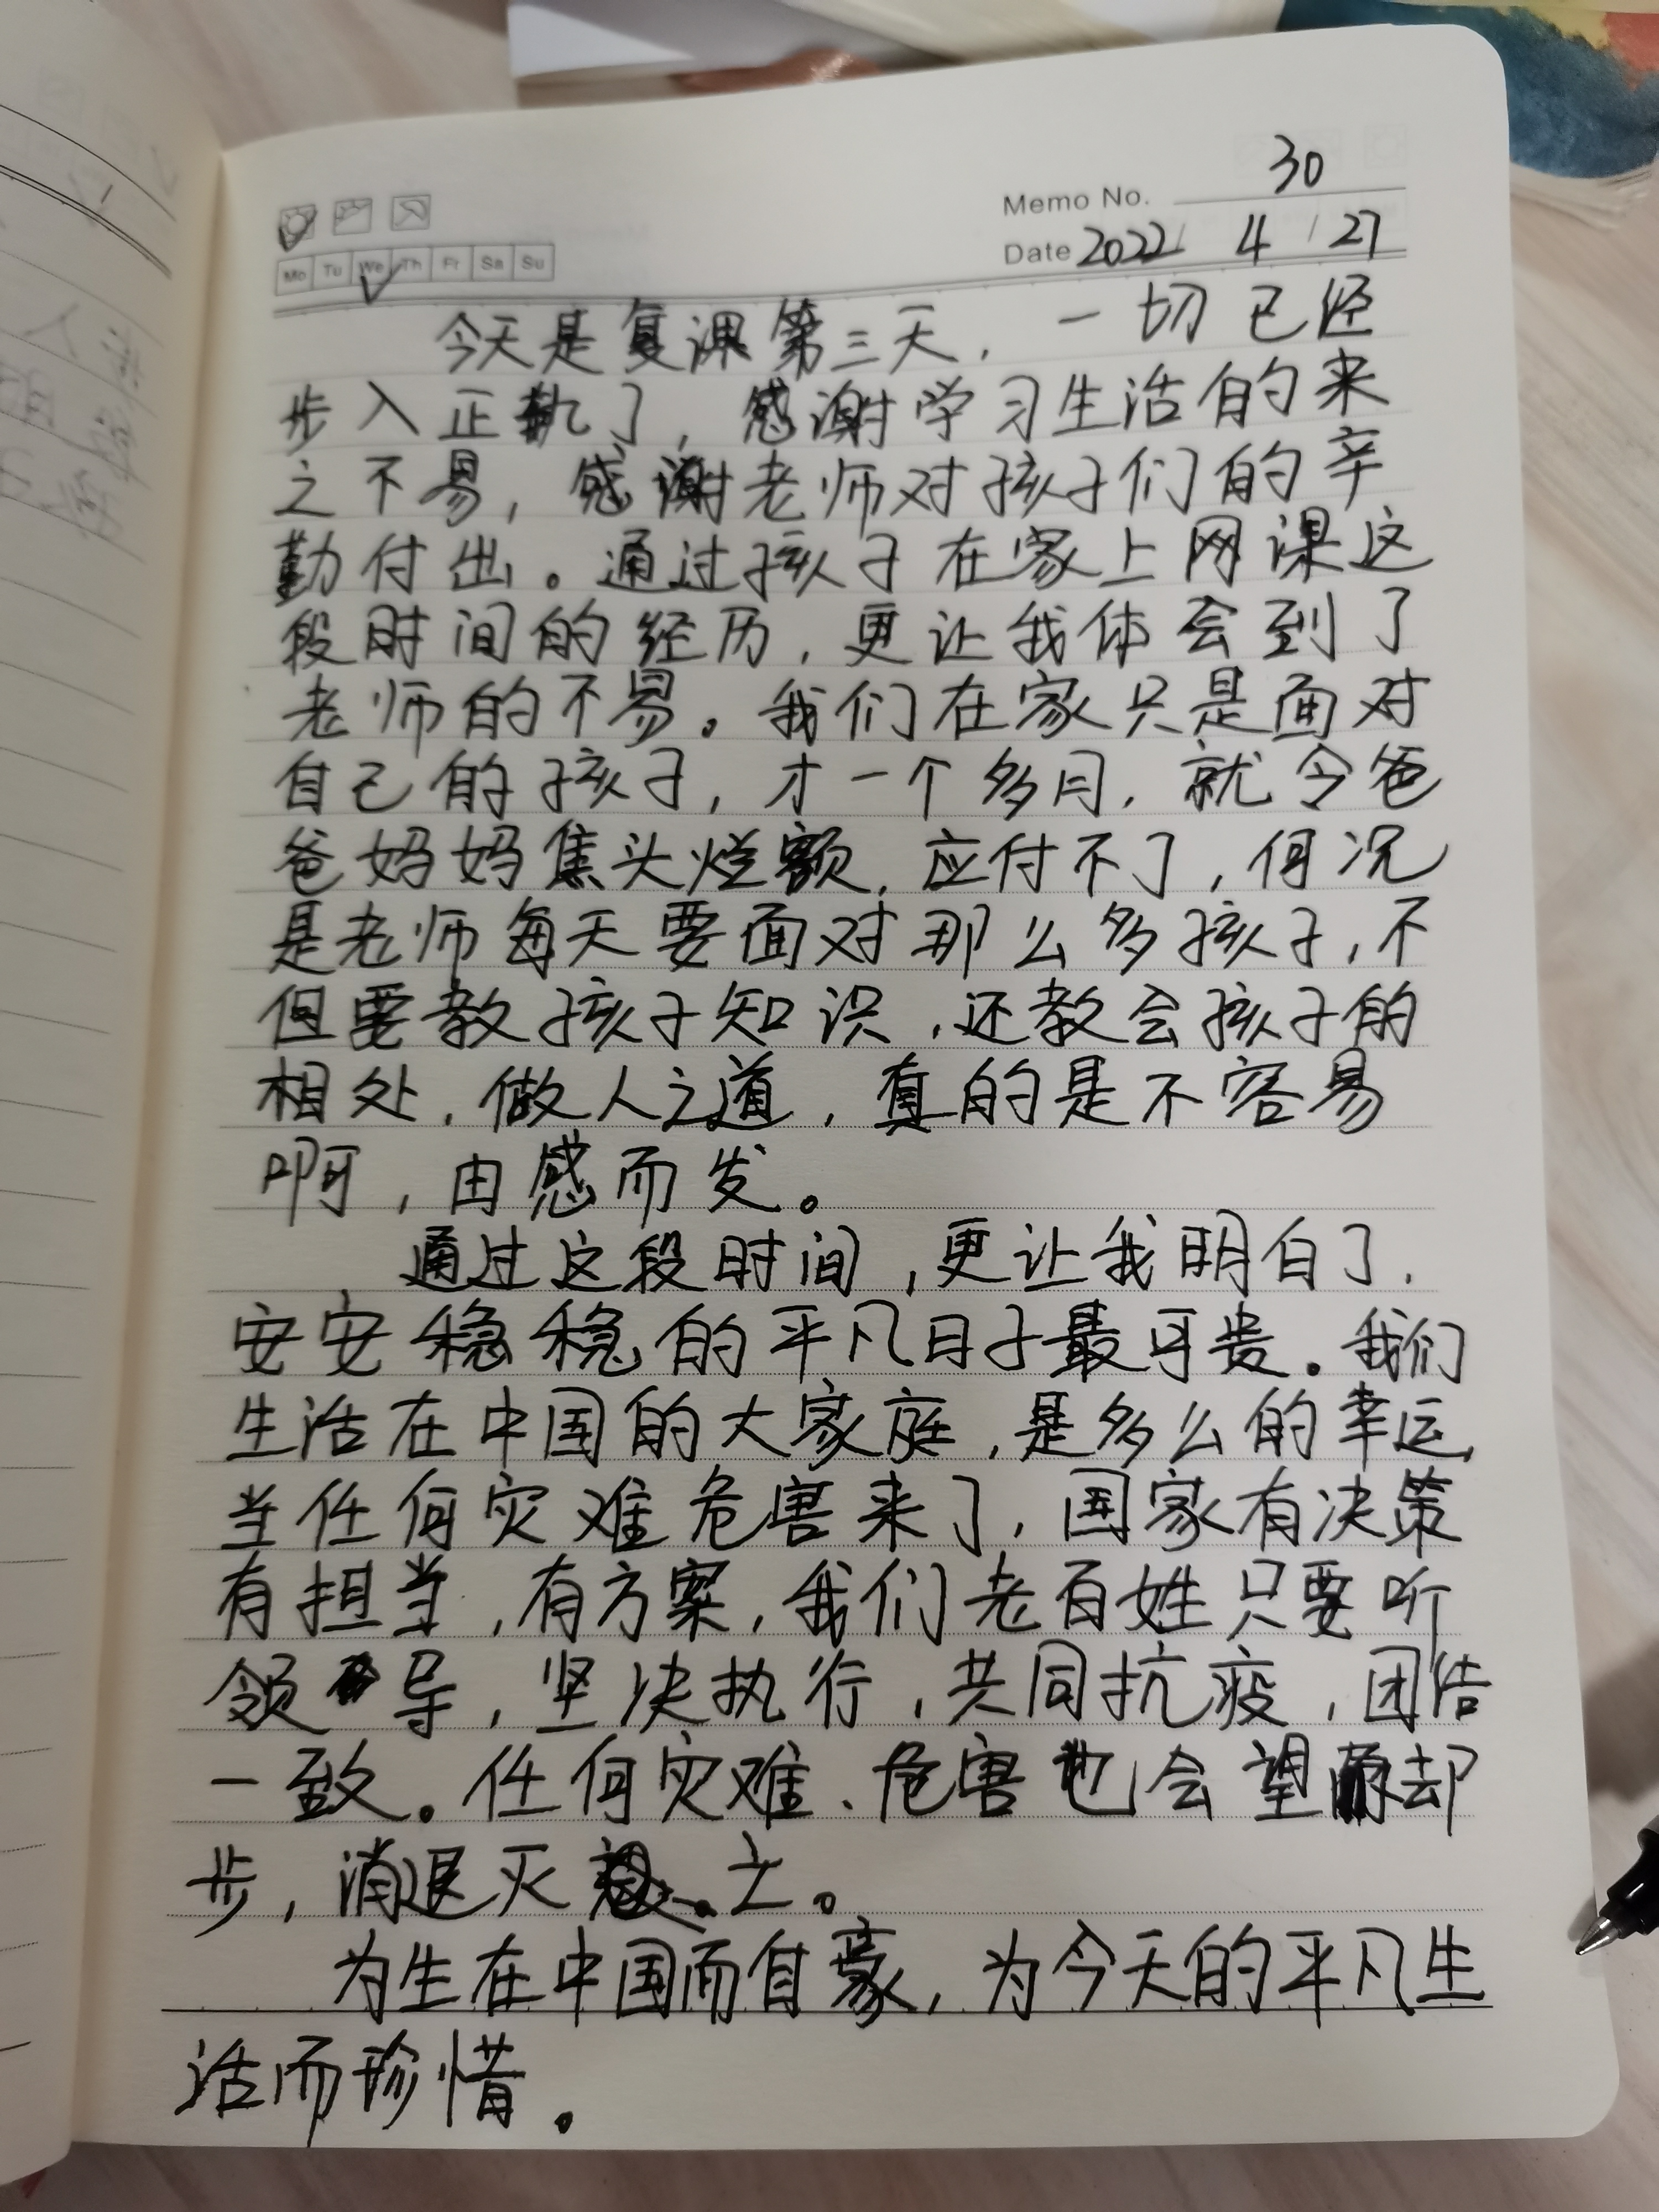 Memo No. 30
Mo Tu We Th Fr Sa Su
Date 2022 / 4 / 27
今天是复课第三天，一切已经
步入正轨了，感谢学习生活的来
之不易，感谢老师对孩子们的辛
勤付出。通过孩子在家上网课这
段时间的经历，更让我体会到了
老师的不易。我们在家只是面对
自己的孩子，才一个多月，就令爸
爸妈妈焦头烂额，应付不了，何况
是老师每天要面对那么多孩子，不
但要教孩子知识，还教会孩子的
相处，做人之道，真的是不容易
啊，由感而发。
通过这段时间，更让我明白了，
安安稳稳的平凡日子最可贵。我们
生活在中国的大家庭，是多么的幸运，
当任何灾难危害来了，国家有决策
有担当，有方案，我们老百姓只要听
领导，坚决执行，共同抗疫，团结
一致。任何灾难、危害也会望而却
步，消退灭亡。
为生在中国而自豪，为今天的平凡生
活而珍惜。